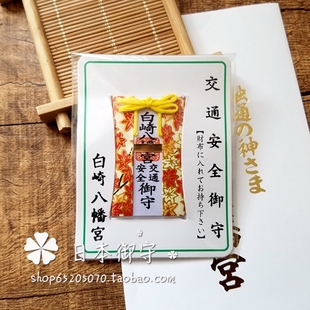 交通安全御守
【財布に入れてお持ち下さい】
白崎八幡宮
交通
安全
御守
白崎八幡宮
通の神さま
宮
日本御守
shop65205070.taobao.com